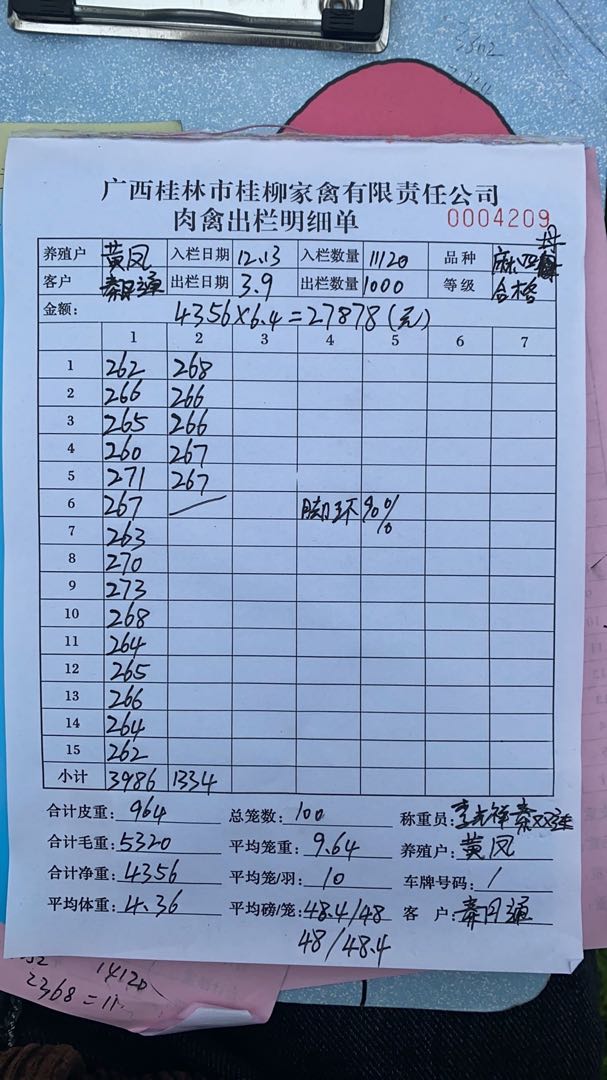 广西桂林市桂柳家禽有限责任公司
肉禽出栏明细单 0004209
养殖户 黄凤 入栏日期 12.13 入栏数量 11120 品种 麻 母
客户 秦日通 出栏日期 3.9 出栏数量 1000 等级 合格
金额: 4356×6.4=27878(元)
1 2 3 4 5 6 7
1 262 268
2 266 266
3 265 266
4 260 267
5 271 267
6 267 脚环90%
7 263
8 270
9 273
10 268
11 264
12 265
13 266
14 264
15 262
小计 3986 1334
合计皮重: 964 总笼数: 100 称重员:
合计毛重: 5320 平均笼重: 9.64 养殖户: 黄凤
合计净重: 4356 平均笼/羽: 10 车牌号码: /
平均体重: 4.36 平均磅/笼: 48.4/48 客 户: 秦日通
48/48.4
14120
2368=11